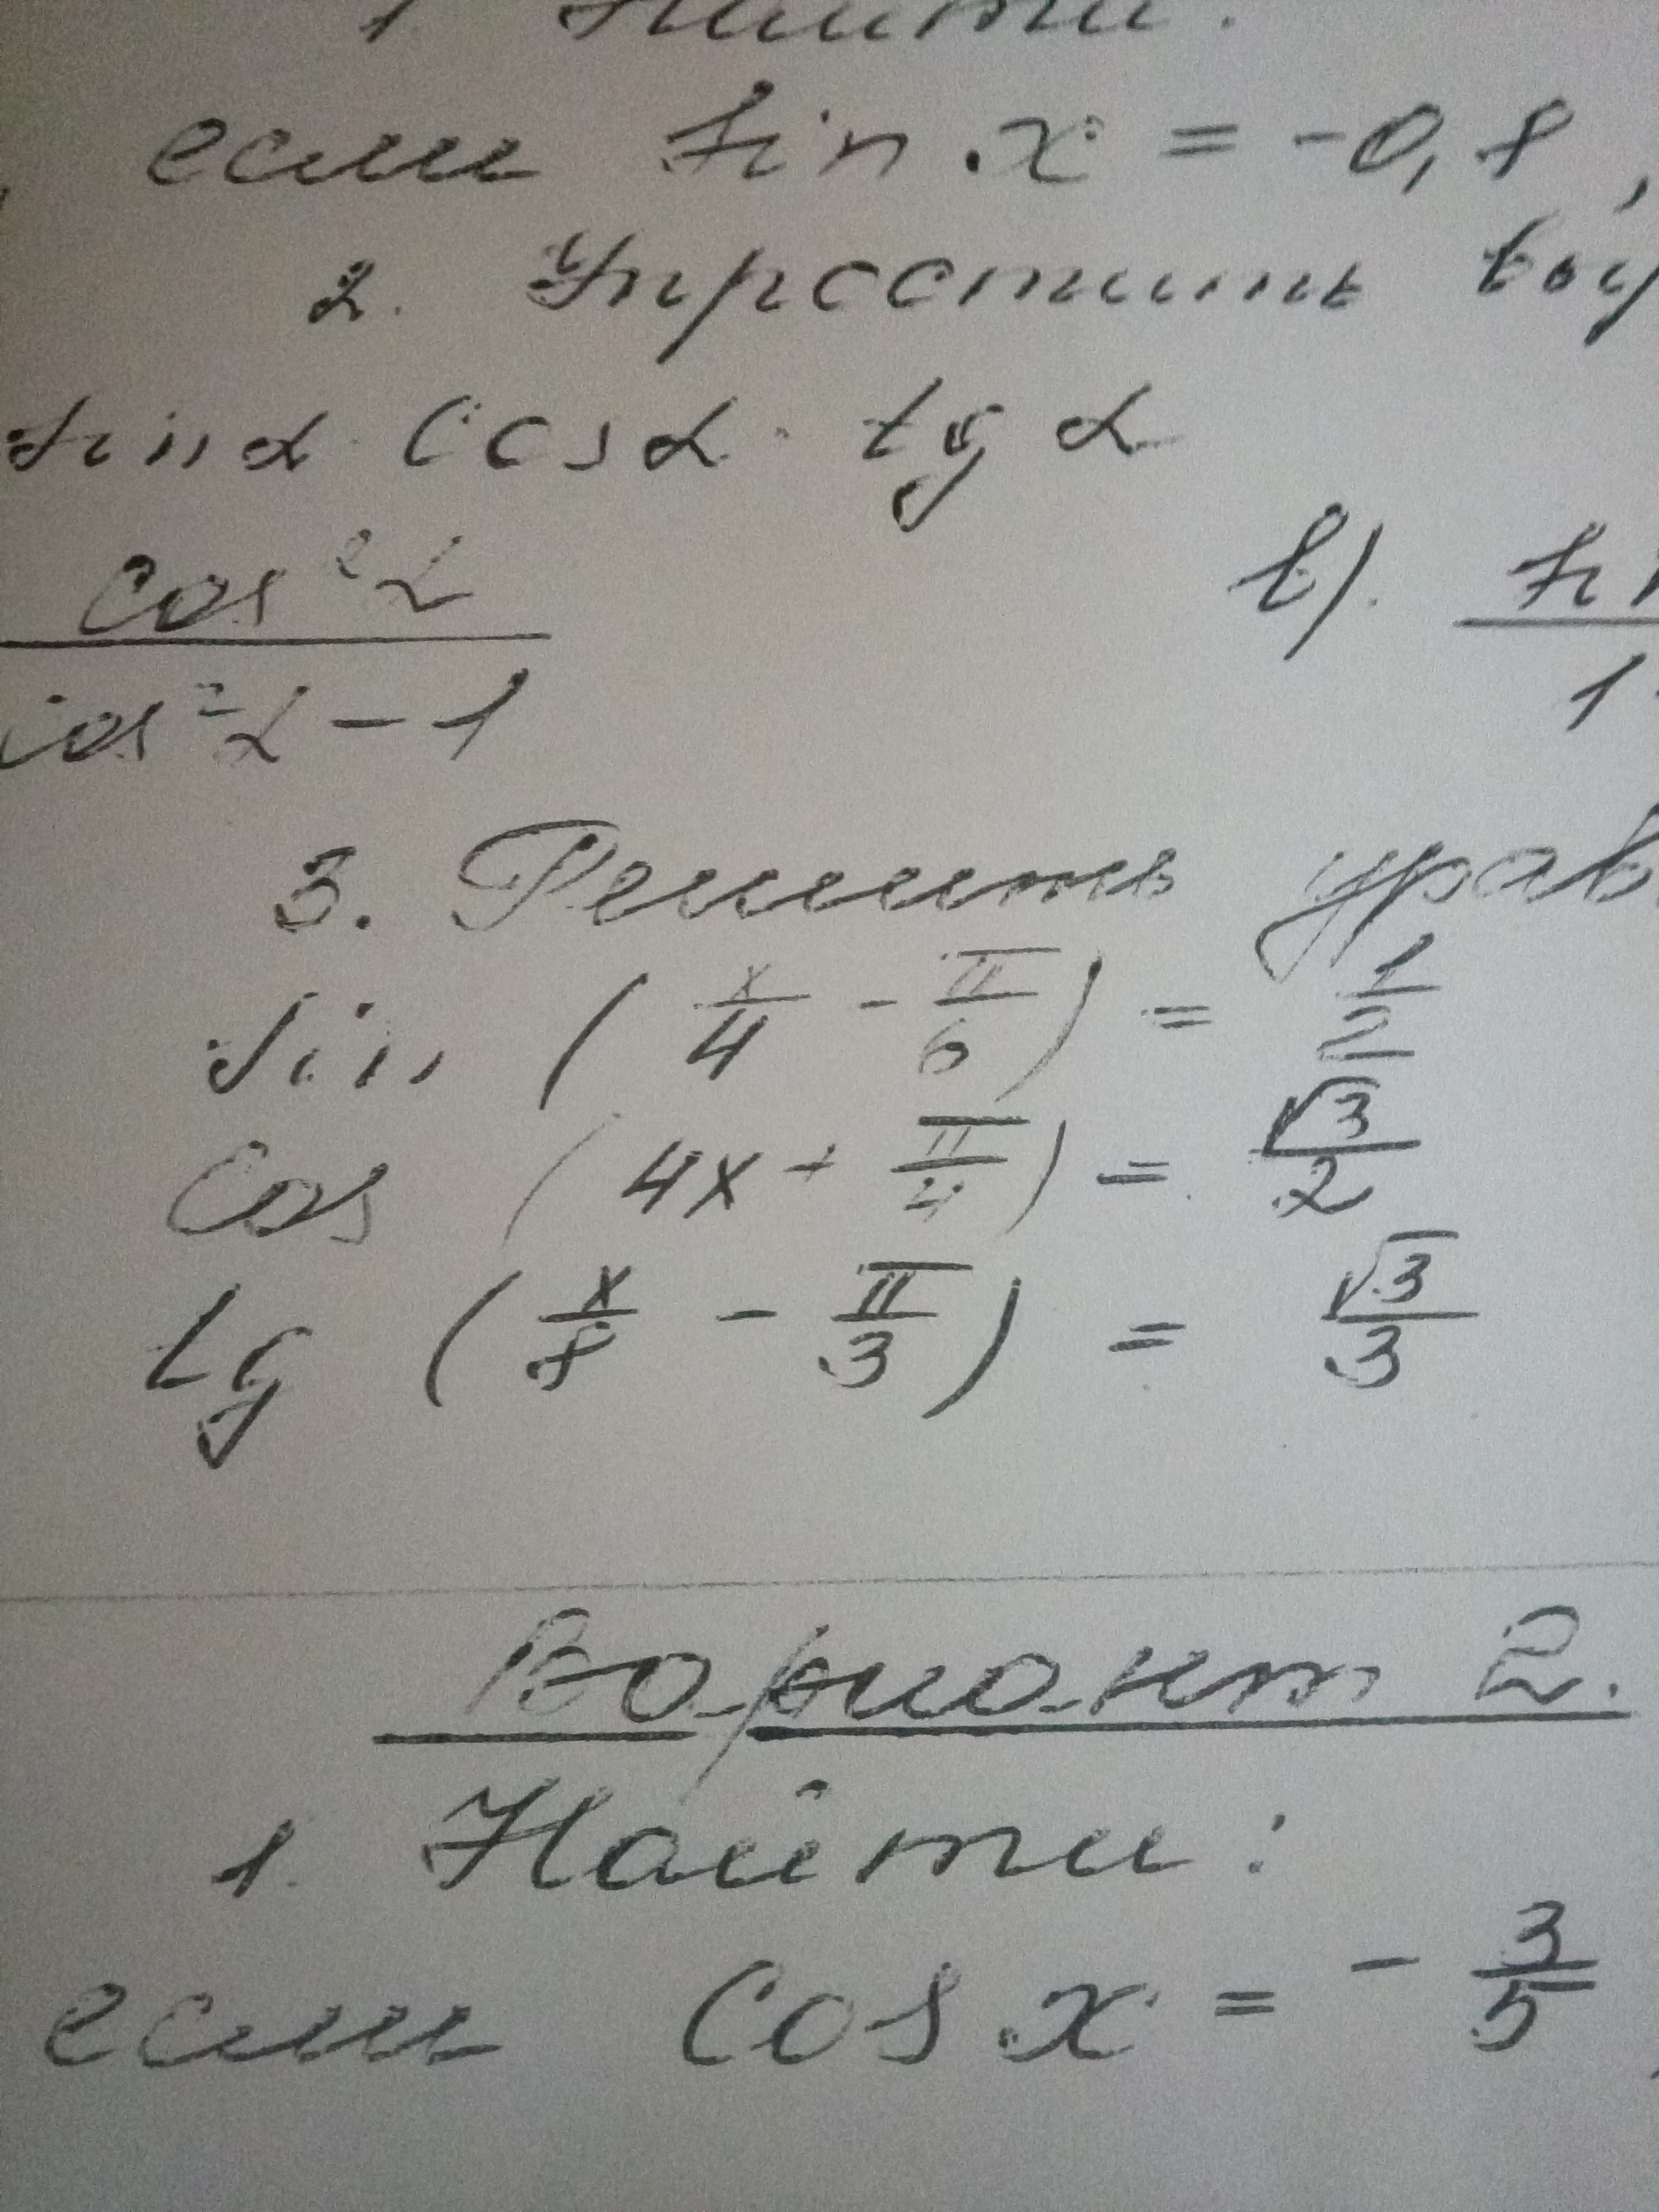 1 Найти:
, если sin x = -0,8,
2. Упростить выр
sin α · cos α · tg α
cos²α / cos²α - 1
в). sin / 1
3. Решить урав
sin (x/4 - π/6) = 1/2
cos (4x + π/4) = √3/2
tg (x/8 - π/3) = √3/3
Вариант 2.
1. Найти:
если cos x = - 3/5,